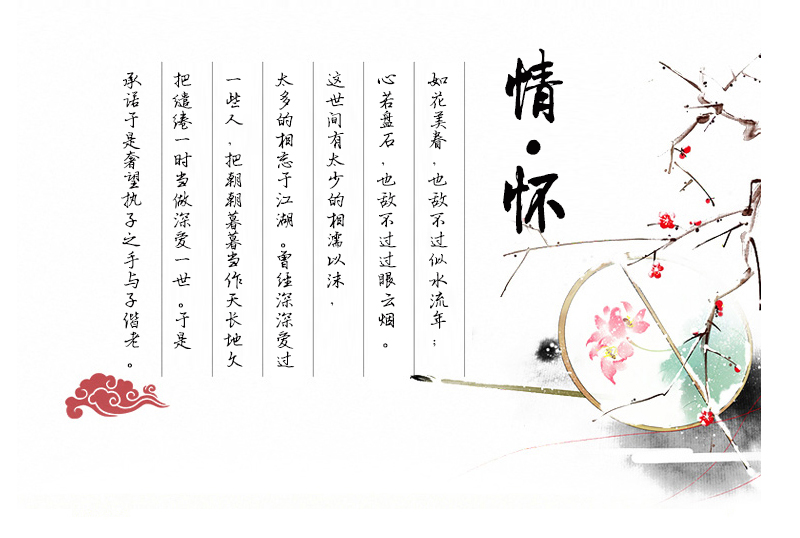 情·怀
如花美眷，也敌不过似水流年；
心若盘石，也敌不过过眼云烟。
这世间有太少的相濡以沫，
太多的相忘于江湖。曾经深深爱过
一些人，把朝朝暮暮当作天长地久
把缱绻一时当做深爱一世。于是
承诺于是奢望执子之手与子偕老。